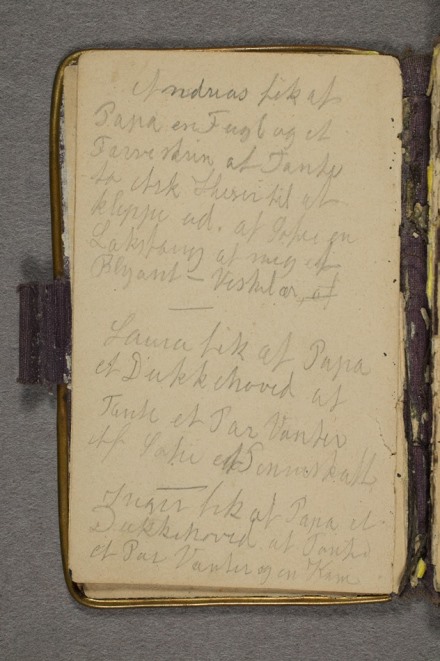 Andreas fik af
Papa en Fugl og et
Farveskrin af Tante
to Ark Theser til at
klippe ud. af Sofie en
Lakstang af mig et
Blyant - Viskelær, af
Laura fik af Papa
et Dukkehoved af
Tante et Par Vanter
af Sofie et
Inger fik af Papa et
Dukkehoved af Tante
et Par Vanter og en Kam